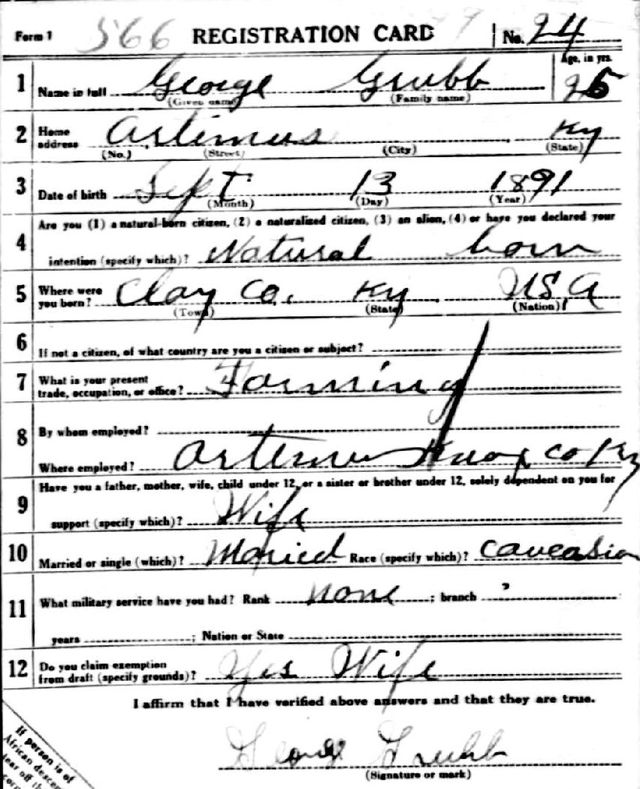 Form 1 566 REGISTRATION CARD No. 24
Age, in yrs.
1 Name in full George Grubb 25
(Given name) (Family name)
2 Home address Artimus Ky
(No.) (Street) (City) (State)
3 Date of birth Sept 13 1891
(Month) (Day) (Year)
4 Are you (1) a natural-born citizen, (2) a naturalized citizen, (3) an alien, (4) or have you declared your
intention (specify which)? Natural born
5 Where were you born? Clay Co. Ky USA
(Town) (State) (Nation)
6 If not a citizen, of what country are you a citizen or subject?
7 What is your present trade, occupation, or office? Farming
8 By whom employed?
Where employed? Artemus Knox Co Ky
9 Have you a father, mother, wife, child under 12, or a sister or brother under 12, solely dependent on you for
support (specify which)? Wife
10 Married or single (which)? Maried Race (specify which)? Caucasion
11 What military service have you had? Rank none ; branch
years ; Nation or State
12 Do you claim exemption from draft (specify grounds)? Yes Wife
I affirm that I have verified above answers and that they are true.
George Grubb
(Signature or mark)
If person is of
African descent
tear off